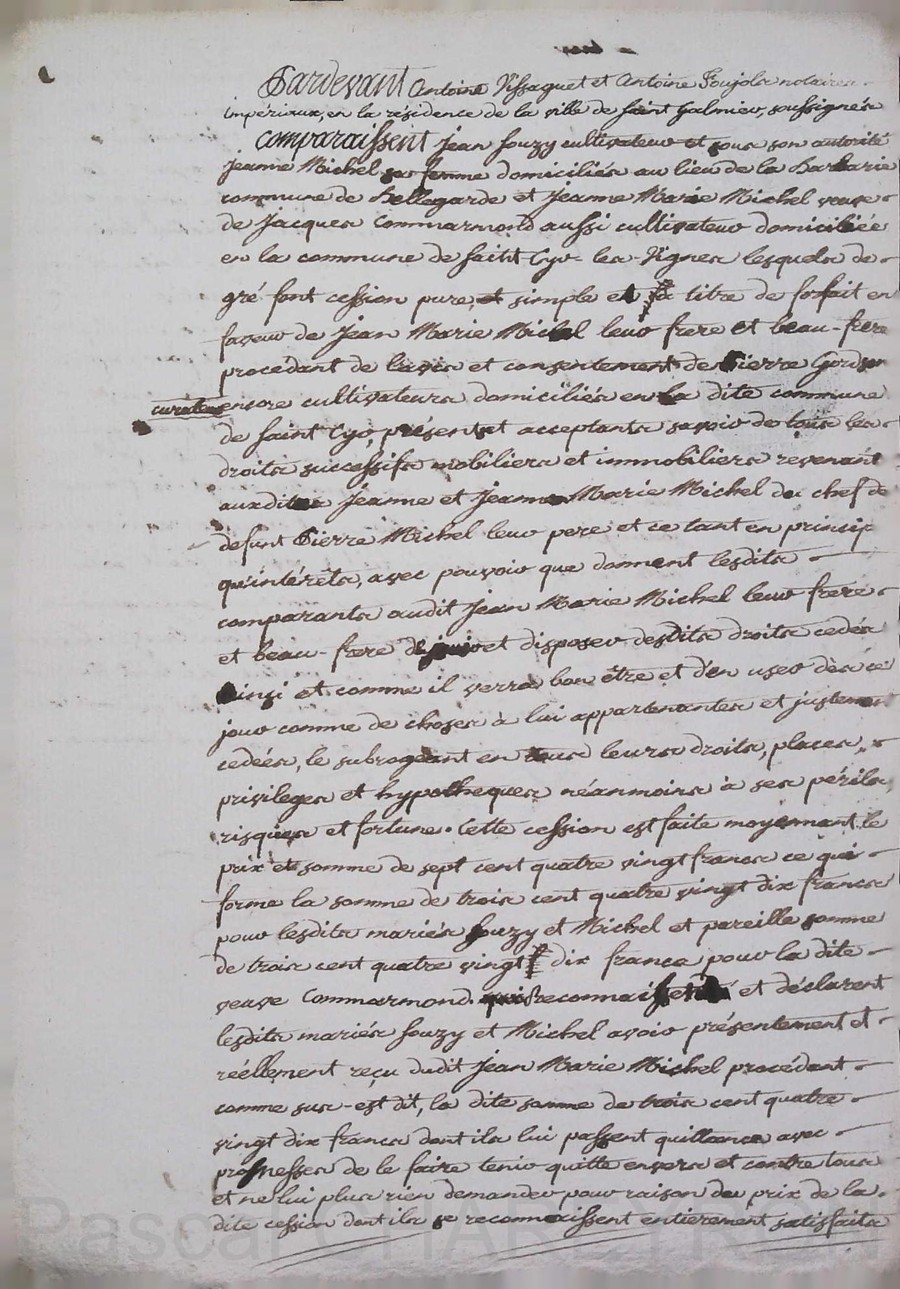 Pardevant Antoine Vissaguet et Antoine Poujola notaires
impériaux, en la résidence de la ville de Saint Galmier, soussignés
comparaissent Jean Souzy cultivateur et sous son autorité
Jeanne Michel sa femme domiciliés au lieu de la Barbarie
commune de Bellegarde et Jeanne Marie Michel veuve
de Jacques Commarmond aussi cultivateur domiciliée
en la commune de saint Cyr les-Vignes lesquels de
gré font cession pure, et simple et à titre de forfait en
faveur de Jean Marie Michel leur frere et beau-frere
procédant de l'avis et consentement de Pierre
curateur
encore cultivateurs domiciliés en la dite commune
de saint Cyr, présents et acceptants savoir de tous les
droits successifs mobiliers et immobiliers revenant
auxdites Jeanne et Jeanne Marie Michel du chef de
defunt Pierre Michel leur pere et ce tant en princip
qu'intérêts, avec pouvoir que donnent lesdits
comparants audit Jean Marie Michel leur frere
et beau-frere de jouir et disposer desdits droits cedés
ainsi et comme il verra bon être et d'en user dès ce
jour comme de choses à lui appartenantes et justement
cedées, le subrogeant en tous leurs droits, places,
privileges et hypotheques néanmoins à ses périls,
risques et fortune. Cette cession est faite moyennant le
prix et somme de sept cent quatre vingt francs ce qui
forme la somme de trois cent quatre vingt dix francs
pour lesdits mariés Souzy et Michel et pareille somme
de trois cent quatre vingt dix francs pour la dite
veuve Commarmond. reconnaissent et déclarent
lesdits mariés Souzy et Michel avoir présentement et
réellement reçu dudit Jean Marie Michel procédant
comme sus-est dit, la dite somme de trois cent quatre
vingt dix francs dont ils lui passent quittance avec
promesses de le faire tenir quitte envers et contre tous
et ne lui plus rien demander pour raison du prix de la
dite cession dont ils se reconnaissent entierement satisfaits
Pascal CHAREYRON